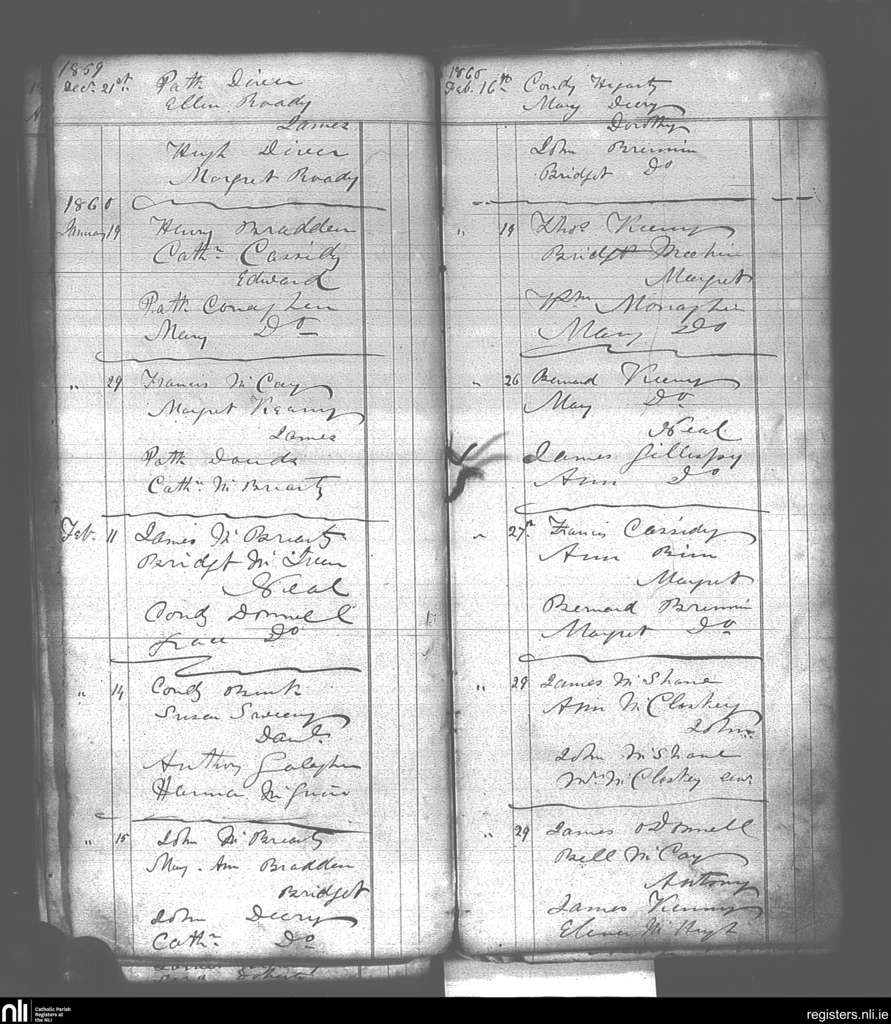 1859
Decr. 21st Patk Diver
Ellen Roady
James
Hugh Diver
Margret Roady
1860
January 19 Henry Bradden
Cathn Cassidy
Edward
Patk Conaghan
Mary Do
" 29 Francis McCay
Margret Kearny
James
Patk
Cathn McBriarty
Feb. 11 James McBriarty
Bridget Mc
Neal
Condy Donnell
Grace Do
" 14 Condy
Susan Sweeny
Danl
Anthony Galagher
Mc
" 15 John McBriarty
May. Ann Bradden
Bridget
John Deery
Cathn Do
1860
Feb. 16th Condy Hegarty
Mary Deery
Dorothy
John Brennin
Bridget Do
" 19 Thos Keeny
Bridget Meehin
Margret
Wm Monaghin
Mary Do
" 26 Bernard Keeny
Mary Do
Neal
James Gillespy
Ann Do
" 27th Francis Cassidy
Ann
Margret
Bernard Brennin
Margret Do
" 29 James McShane
Ann McCloskey
John
John McShane
Mrs McCloskey senr
" 29 James ODonnell
Bell McCay
Antony
James Kenny
Elenor McHugh
nli
Catholic Parish
Registers at
the NLI
registers.nli.ie